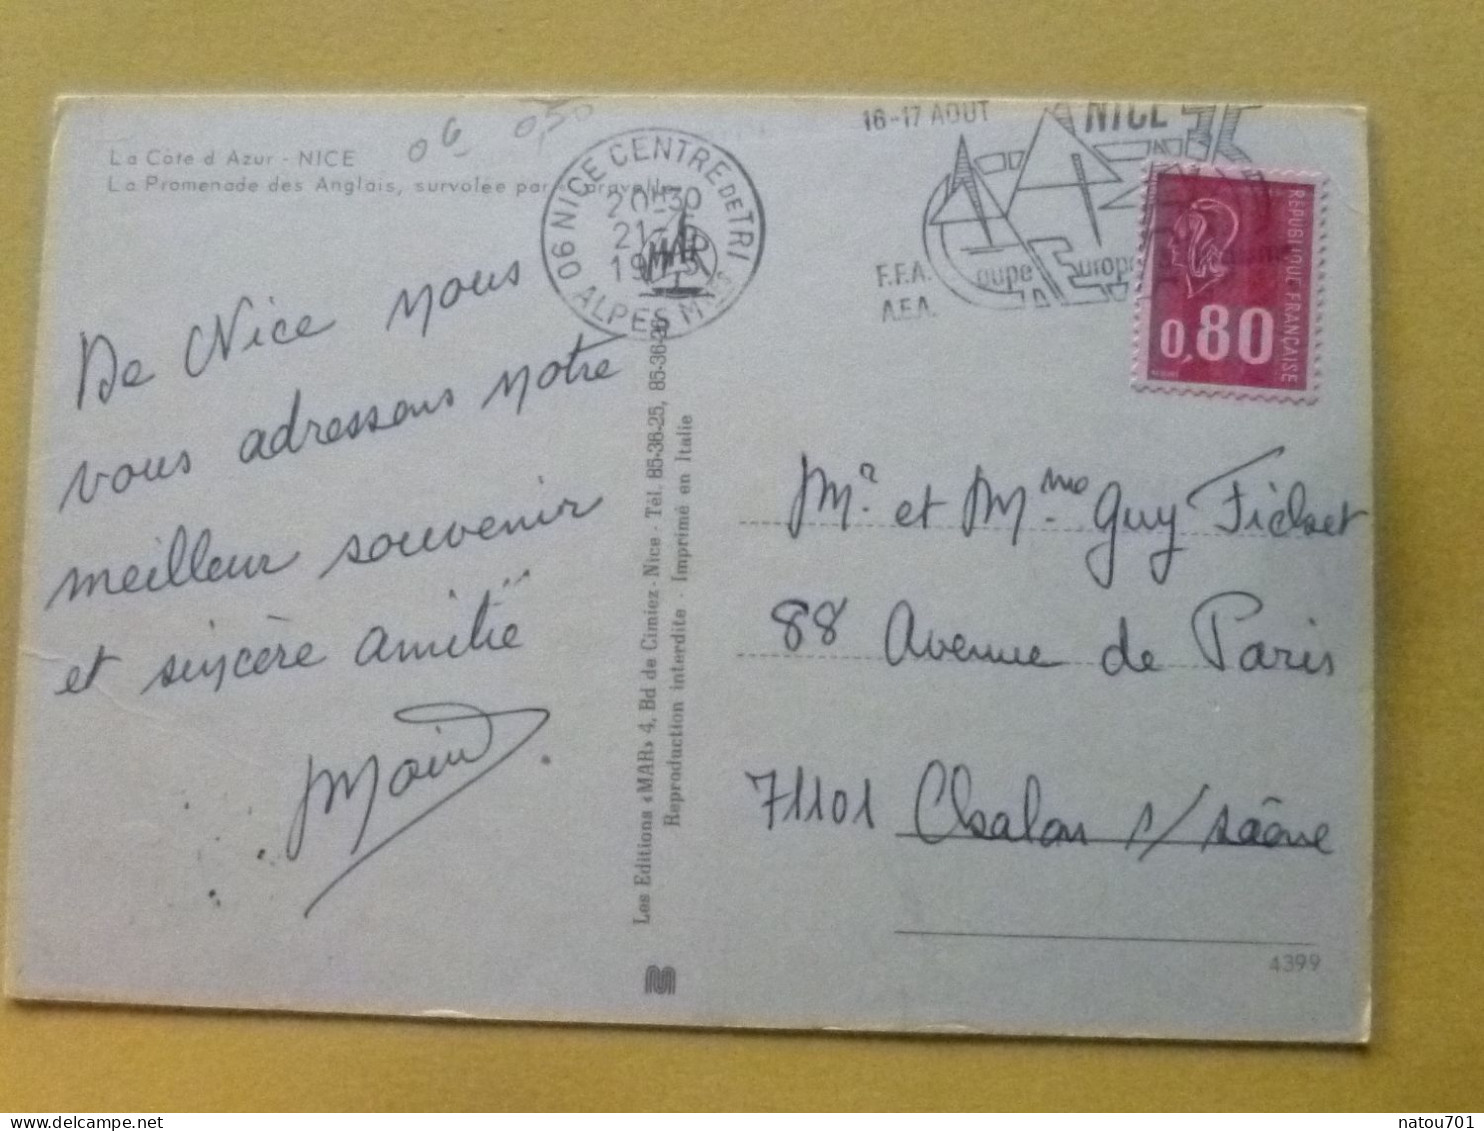 La Côte d Azur - NICE
La Promenade des Anglais, survolée par
06 0,50
06 NICE CENTRE DE TRI
20H30
ALPES MMES
MAR
16-17 AOUT
NICE 75
F.F.A.
A.E.A.
Coupe Europe
REPUBLIQUE FRANÇAISE
0,80
De Nice nous
vous adressons notre
meilleur souvenir
et sincère amitié
Les Editions «MAR» 4, Bd de Cimiez - Nice - Tél. 85-36-25, 85-36-26
Reproduction interdite - Imprimé en Italie
Mr. et Mme Guy
88 Avenue de Paris
71101 Chalon s/ saône
4399
natou701